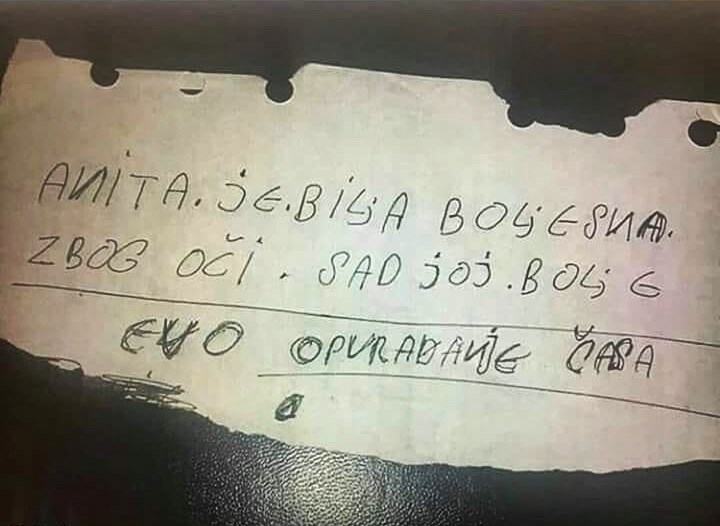 ANiTA. JE. BiLjA BOLjESNA.
ZBOG OČi. SAD jOj. BOLjE
EVO OPVRADANjE ČASA